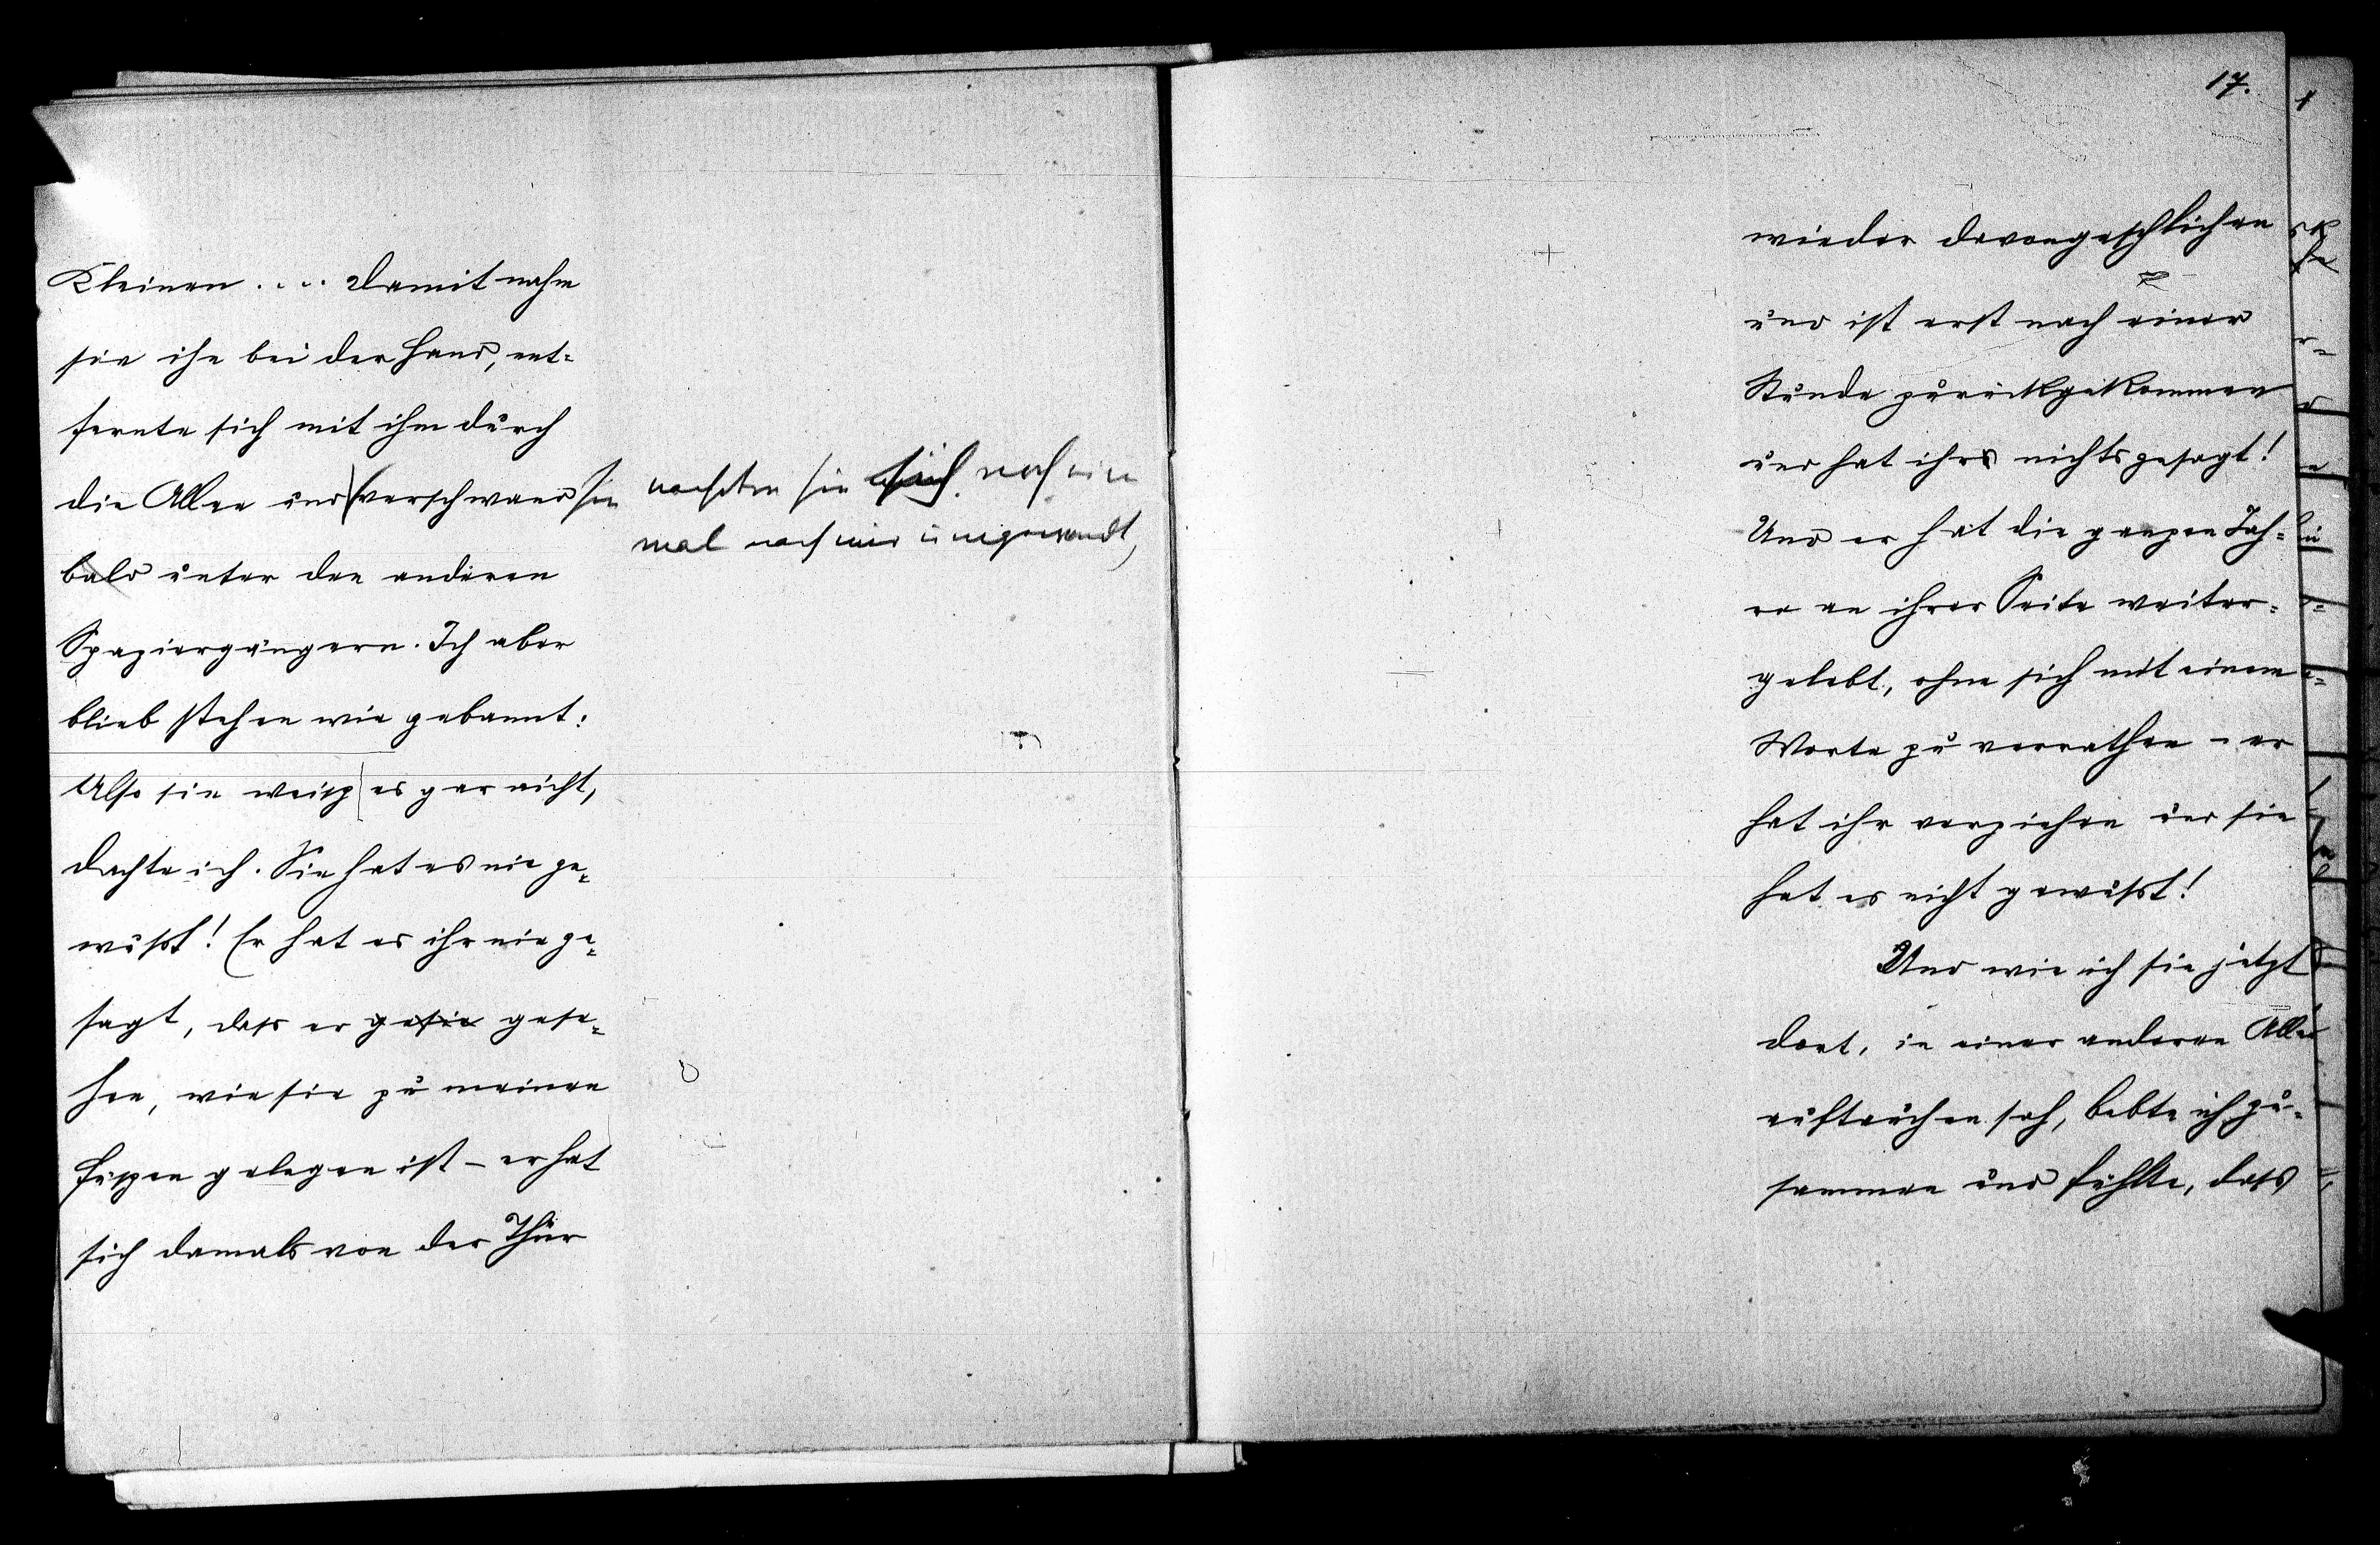 Kleinen .... Damit nahm
sie ihn bei der Hand, ent=
fernte sich mit ihm durch
die Allee und verschwand sie
bald unter den anderen
Spaziergängern. Ich aber
blieb stehen wie gebannt:
Also sie weiß es gar nicht,
dachte ich. Sie hat es nie ge=
wußt! Er hat es ihr nie ge=
sagt, dass er gesie gese=
hen, wie sie zu meinen
Füßen gelegen ist – er hat
sich damals von der Thür
nachdem sie sich noch ein
mal nach mir umgewandt,
17.
wieder davongeschlichen
und ist erst nach einer
Stunde zurückgekommen
und hat ihr nichts gesagt!
Und er hat die ganzen Jah=
re an ihrer Seite weiter=
gelebt, ohne sich mit einem
Worte zu verrathen – er
hat ihr verziehen und sie
hat es nicht gewußt!
Und wie ich sie jetzt
dort, in einer anderen Allee
auftauchen sah, bebte ich zu=
sammen und fühlte, dass